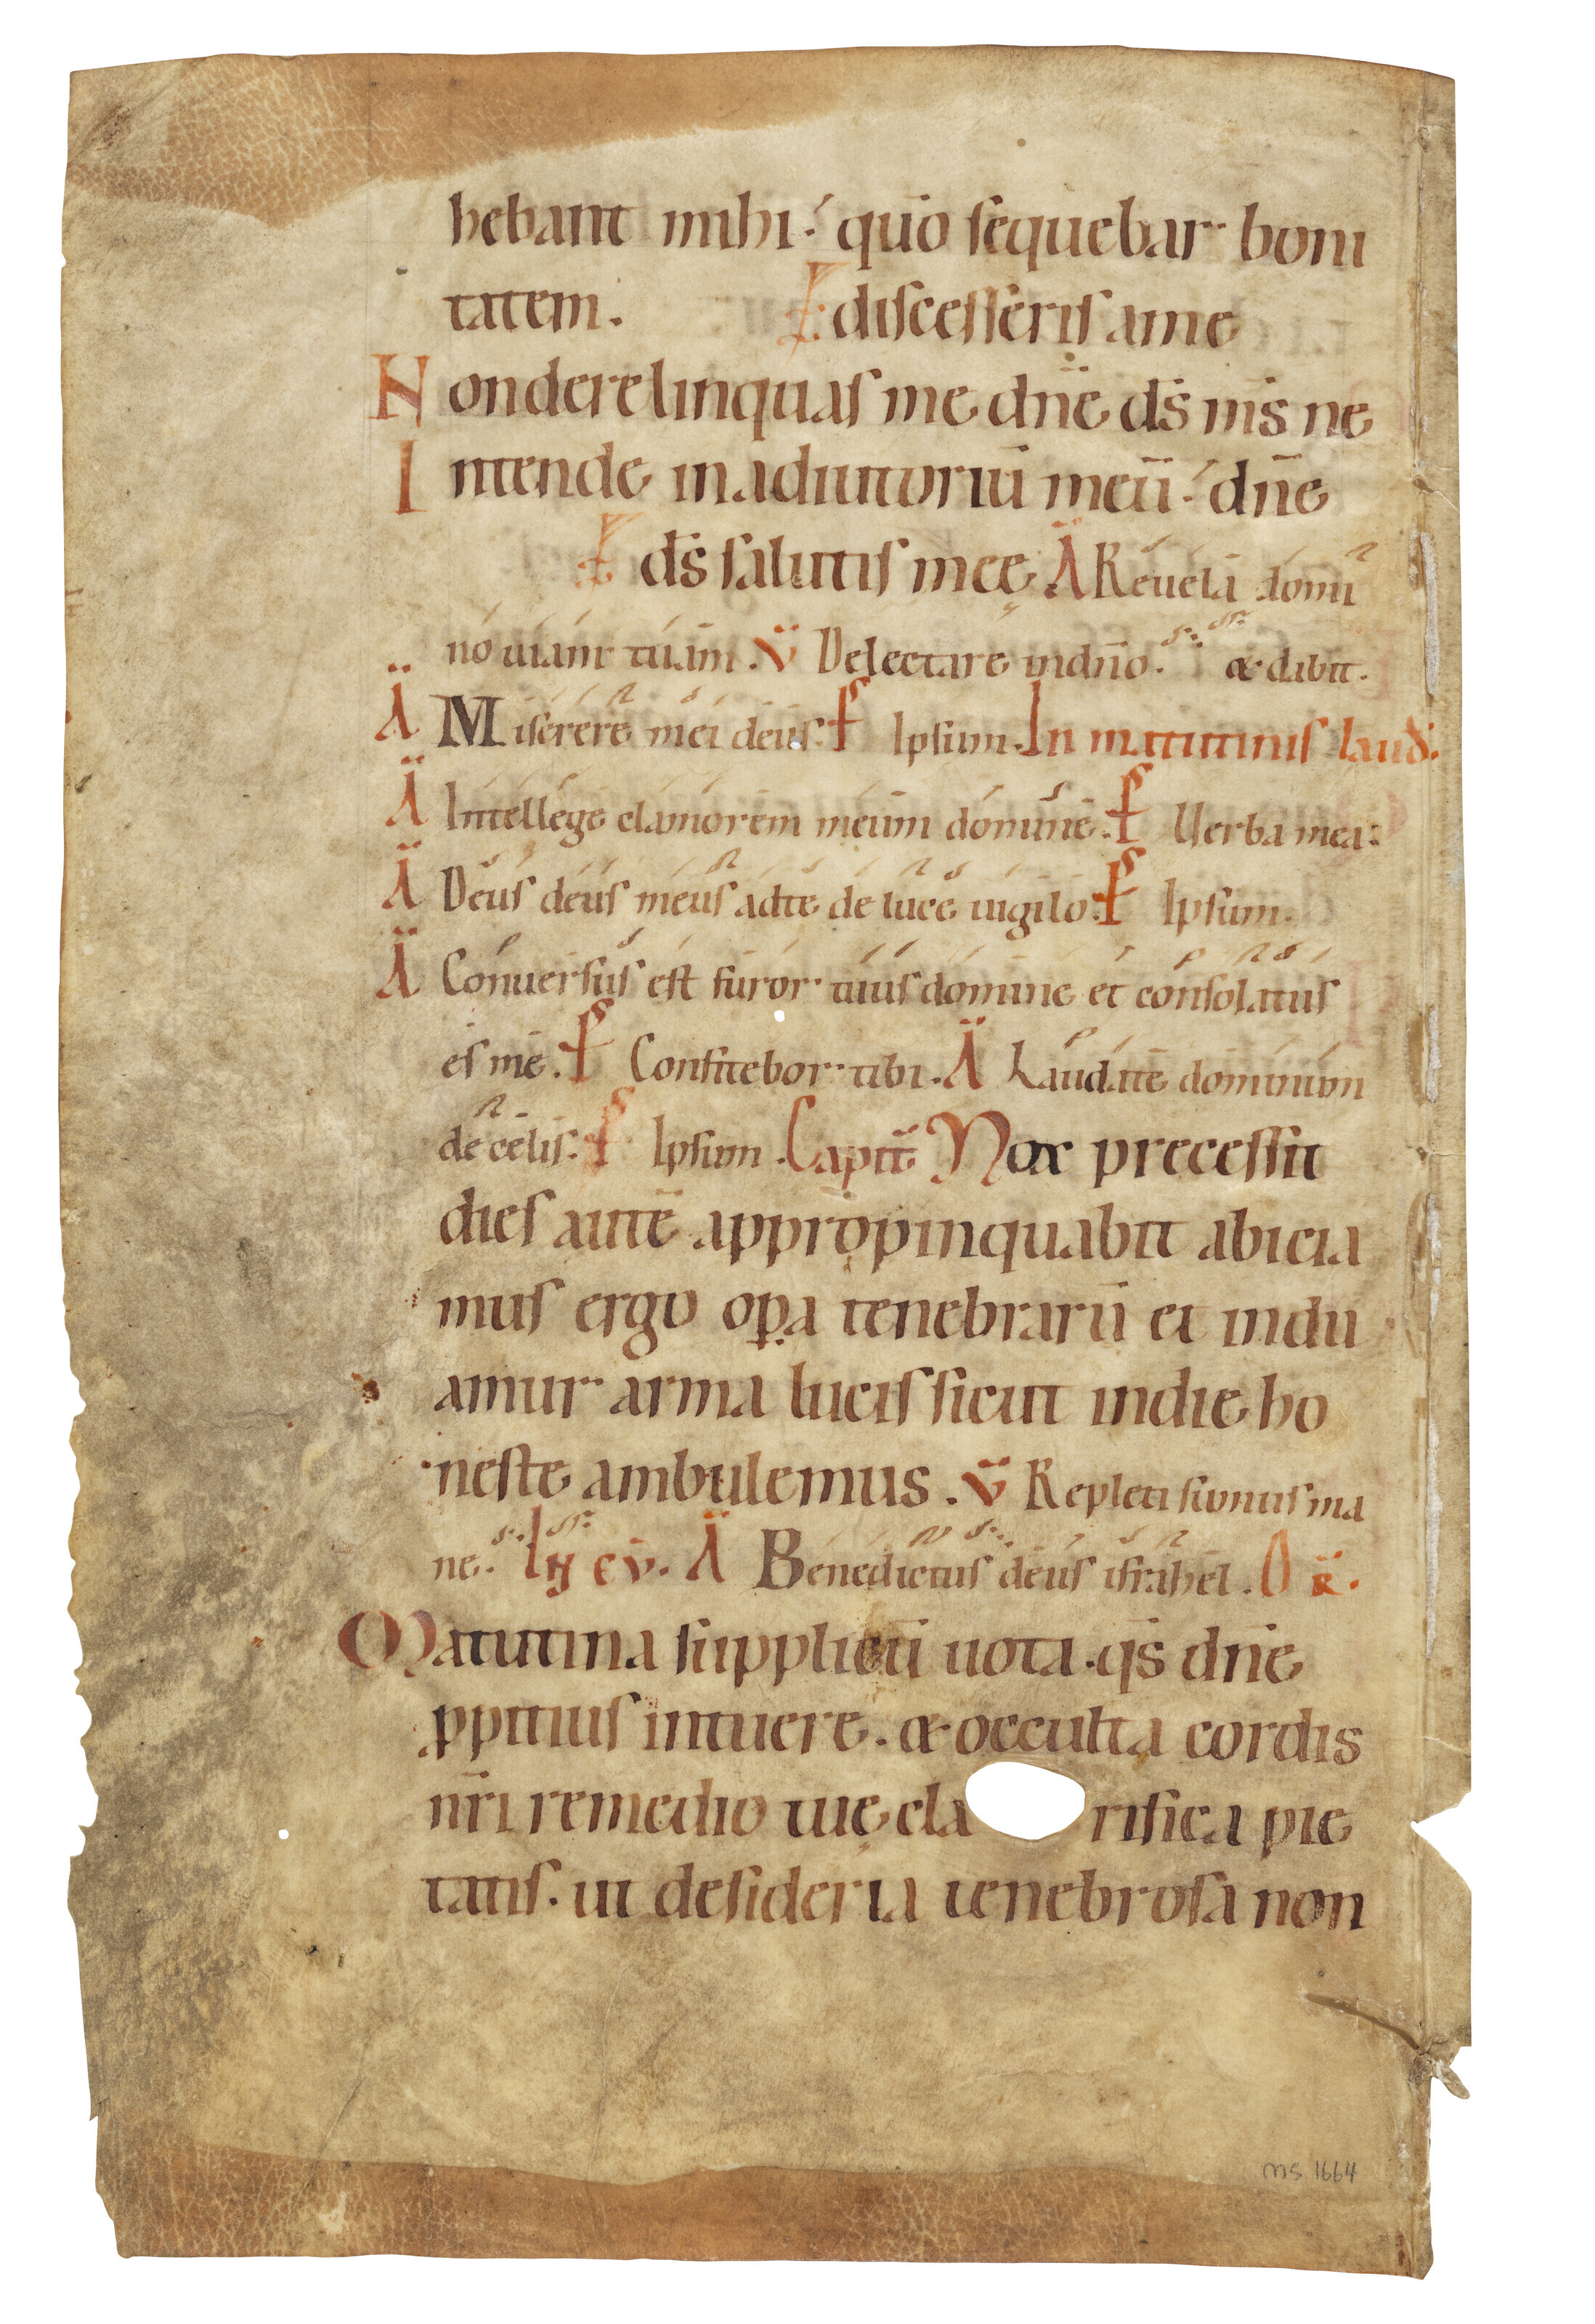 hebant mihi : quō sequebar boni
tatem. discesseris a me
Non derelinquas me dn̄e ds̄ ms̄ ne
Intende in adiutoriū meū : dn̄e
ds̄ salutis meę A Reuela domi
no uiam tuam . V Delectare in dn̄o . & dabit .
A Miserere mei deus . Ps Ipsum . In matutinis laud .
A Intellege clamorem meum domine . Ps Uerba mea :
A Deus deus meus ad te de luce uigilo . Ps Ipsum .
A Conuersus est furor tuus domine et consolatus
es me . Ps Confitebor tibi . A Laudate dominum
de celis . Ps Ipsum . Capit̄ Nox precessit
dies autē appropinquabit abicia
mus ergo op̄a tenebrarū et indu
amur arma lucis sicut in die ho
neste ambulemus . V Repleti sumus ma
ne . In ev̄ . A Benedictus deus israhel . O R .
Matutina supplicū uota . qs̄ dn̄e
ꝓpitius intuere . & occulta cordis
nr̄i remedio tuę cla rifica pie
tatis . ut desideria tenebrosa non
ms 1664